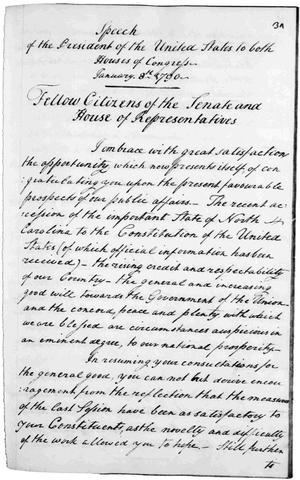 3A
Speech
of the President of the United States to both
Houses of Congress
January. 8th 1790.
Fellow Citizens of the Senate and
House of Representatives
I embrace with great satisfaction
the opportunity which now presents itself of con
gratulating you upon the present favourable
prospects of our public affairs — The recent ac
cession of the important State of North
Carolina to the Constitution of the United
States (of which official information has been
received) — the rising credit and respectability
of our Country — the general and increasing
good will towards the Government of the Union —
and the concord, peace and plenty, with which
we are blessed are circumstances auspicious in
an eminent degree, to our national prosperity —
In resuming your consultations for
the general good, you can not but derive encou
ragement from the reflection that the measures
of the last Session have been as satisfactory to
your Constituents, as the novelty and difficulty
of the work allowed you to hope — Still further
to